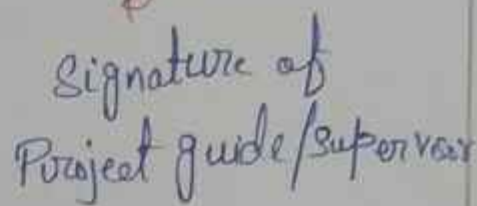 Signature of
Project guide/Supervisor